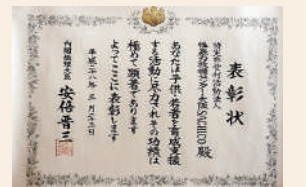 表彰状
特定非営利活動法人
殿
あなたは子供・若者を育成支援
する活動に尽力されその功績は
極めて顕著であります
よってここに表彰します
平成二十八年三月二十三日
内閣総理大臣 安倍晋三